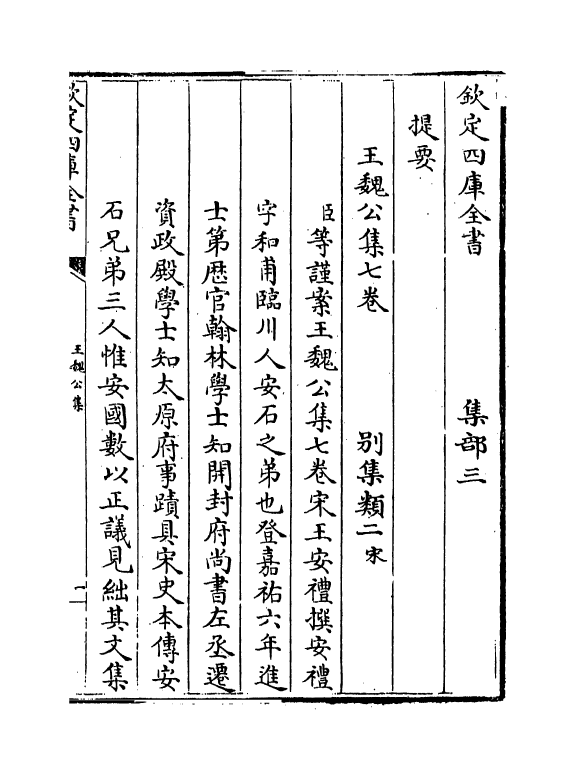 欽定四庫全書　集部三
提要
王魏公集七卷　別集類二宋
臣等謹案王魏公集七卷宋王安禮撰安禮
字和甫臨川人安石之弟也登嘉祐六年進
士第歴官翰林學士知開封府尚書左丞遷
資政殿學士知太原府事蹟具宋史本傳安
石兄弟三人惟安國數以正議見絀其文集
欽定四庫全書
王魏公集
一